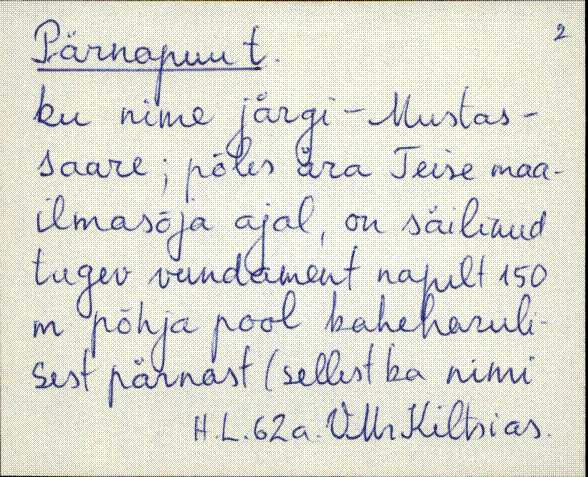 2
Pärnapuu t.
ku nime järgi - Mustas-
saare; põles ära Teise maa-
ilmasõja ajal, on säilinud
tugev vundament napilt 150
m põhja pool kaheharuli-
sest pärnast (sellest ka nimi
H.L. 62a. VMr Kiltsias.